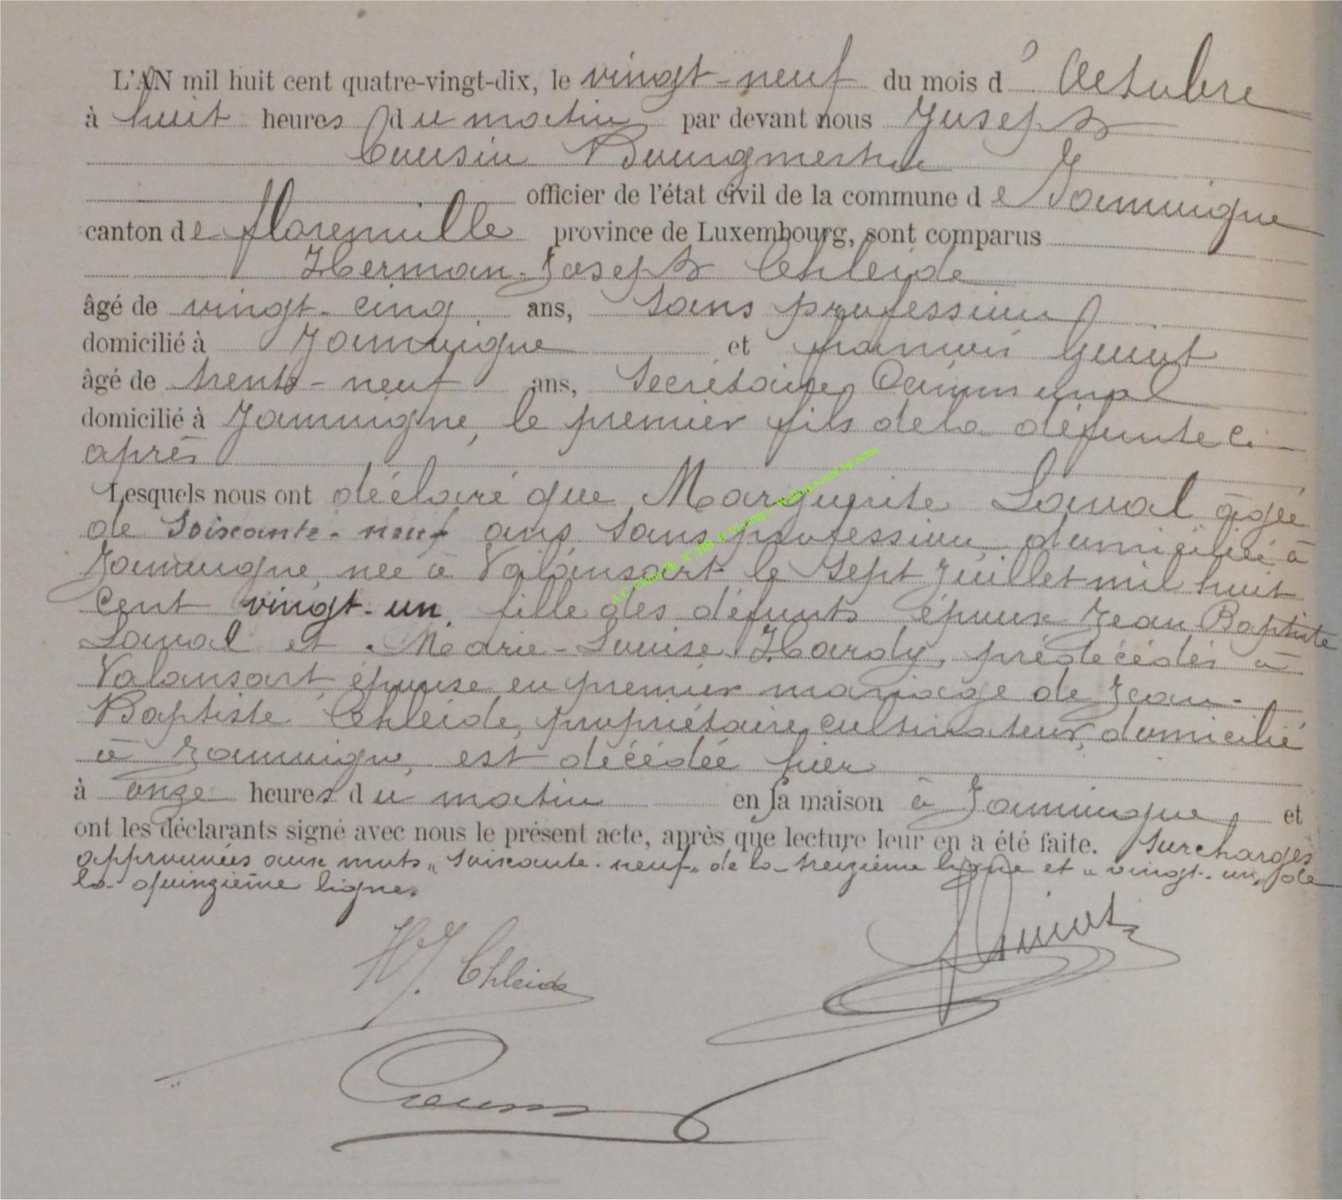 L'AN mil huit cent quatre-vingt-dix, le vingt-neuf du mois d' Octobre
à huit heures du matin par devant nous Joseph
Cousin Bourgmestre
officier de l'état civil de la commune de Jamoigne
canton de florenville province de Luxembourg, sont comparus
Herman-Joseph Chleide
âgé de vingt-cinq ans, sans profession
domicilié à Jamoigne et françois Guiot
âgé de trente-neuf ans, Secrétaire Communal
domicilié à Jamoigne, le premier fils de la défunte ci-
après
Lesquels nous ont déclaré que Marguerite Lawal âgée
de Soixante-neuf ans sans profession, domiciliée à
Jamoigne, née à Valansart le sept Juillet mil huit
cent vingt-un, fille des défunts époux Jean Baptiste
Lawal et Marie-Louise Hardy, prédécédés à
Valansart, épouse en premier mariage de Jean-
Baptiste Chleide, propriétaire cultivateur, domicilié
à Jamoigne, est décédée hier
à onze heures du matin en sa maison à Jamoigne, et
ont les déclarants signé avec nous le présent acte, après que lecture leur en a été faite. Surcharges
approuvées aux mots "soixante-neuf" de la treizième ligne et "vingt-un" de
la quinzième ligne.
HJ. Chleide
Guiot
Cousin